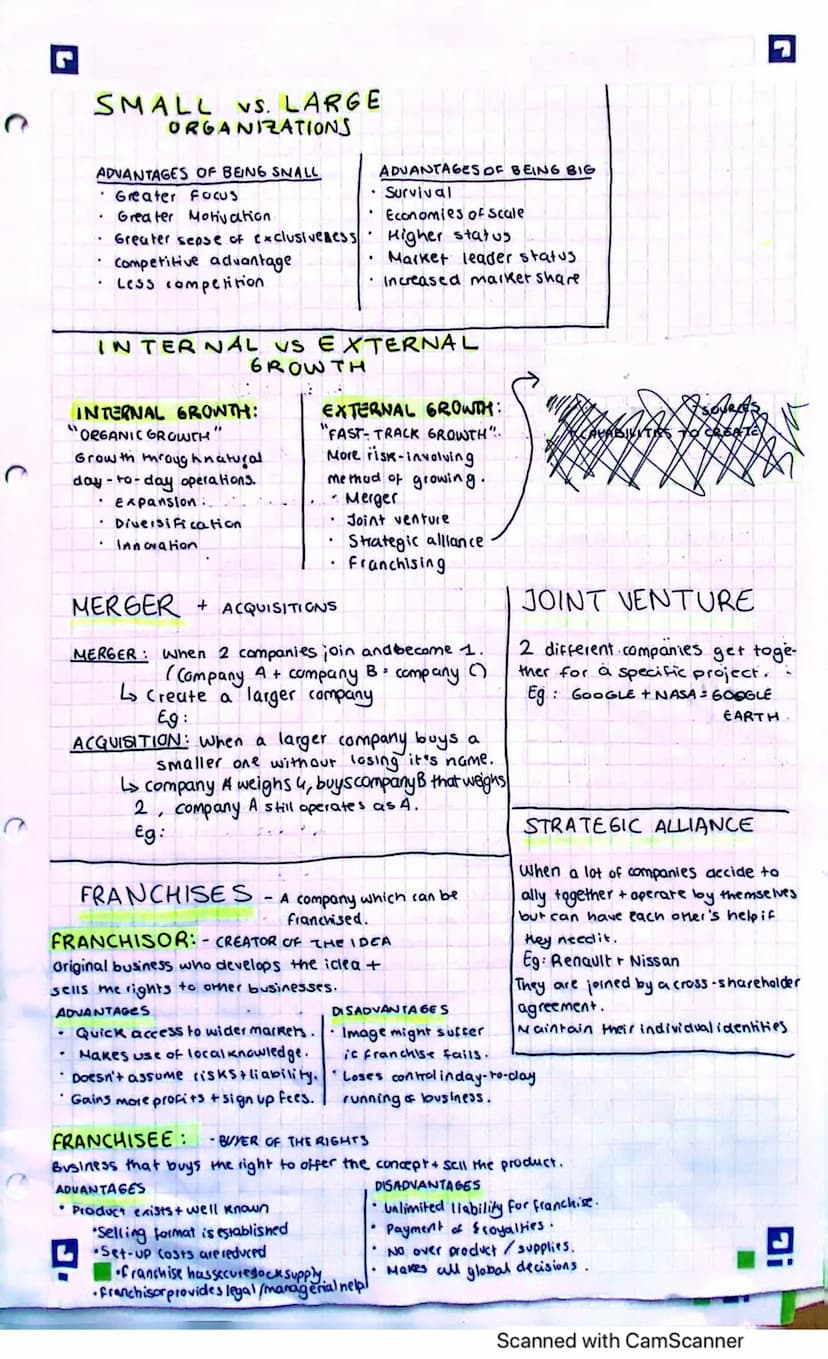 SMALL vs. LARGE
ORGANIZATIONS
ADVANTAGES OF BEING SMALL
· Greater Focus
· Greater Motivation
· Greater sense of exclusiveness
· Competitive advantage
· Less competition
ADVANTAGES OF BEING BIG
· Survival
· Economies of scale
· Higher status
· Market leader status
· Increased market share
INTERNAL VS EXTERNAL
GROWTH
INTERNAL GROWTH:
"ORGANIC GROWTH"
Growth through natural
day-to-day operations.
· Expansion
· Diversification
· Innovation
EXTERNAL GROWTH:
"FAST-TRACK GROWTH".
More risk-involving
method of growing.
· Merger
· Joint venture
· Strategic alliance
· Franchising
TO CREATE
MERGER + ACQUISITIONS
MERGER: When 2 companies join and become 1.
(Company A + company B = company C)
↳ Create a larger company
Eg:
ACQUISITION: When a larger company buys a
smaller one without losing it's name.
↳ company A weighs 4, buys company B that weighs
2, company A still operates as A.
Eg:
JOINT VENTURE
2 different companies get toge-
ther for a specific project.
Eg: GOOGLE + NASA = GOOGLE
EARTH
STRATEGIC ALLIANCE
When a lot of companies decide to
ally together + operate by themselves
but can have each oner's help if
they need it.
Eg: Renault + Nissan
They are joined by a cross-shareholder
agreement.
Maintain their individual identities
FRANCHISES - A company which can be
franchised.
FRANCHISOR: - CREATOR OF THE IDEA
Original business who develops the idea +
sells the rights to other businesses.
ADVANTAGES
· Quick access to wider markets.
· Makes use of local knowledge.
· Doesn't assume risks + liability.
· Gains more profits + sign up fees.
DISADVANTAGES
· Image might suffer
if franchise fails.
· Loses control in day-to-day
running of business.
FRANCHISEE: - BUYER OF THE RIGHTS
Business that buys the right to offer the concept + sell the product.
ADVANTAGES
· Product exists + well known
· Selling format is established
· Set-up costs are reduced
· Franchise has secure stock supply
· Franchisor provides legal/managerial help
DISADVANTAGES
· Unlimited liability for franchise.
· Payment of royalties.
· No over product / supplies.
· Makes all global decisions.
Scanned with CamScanner